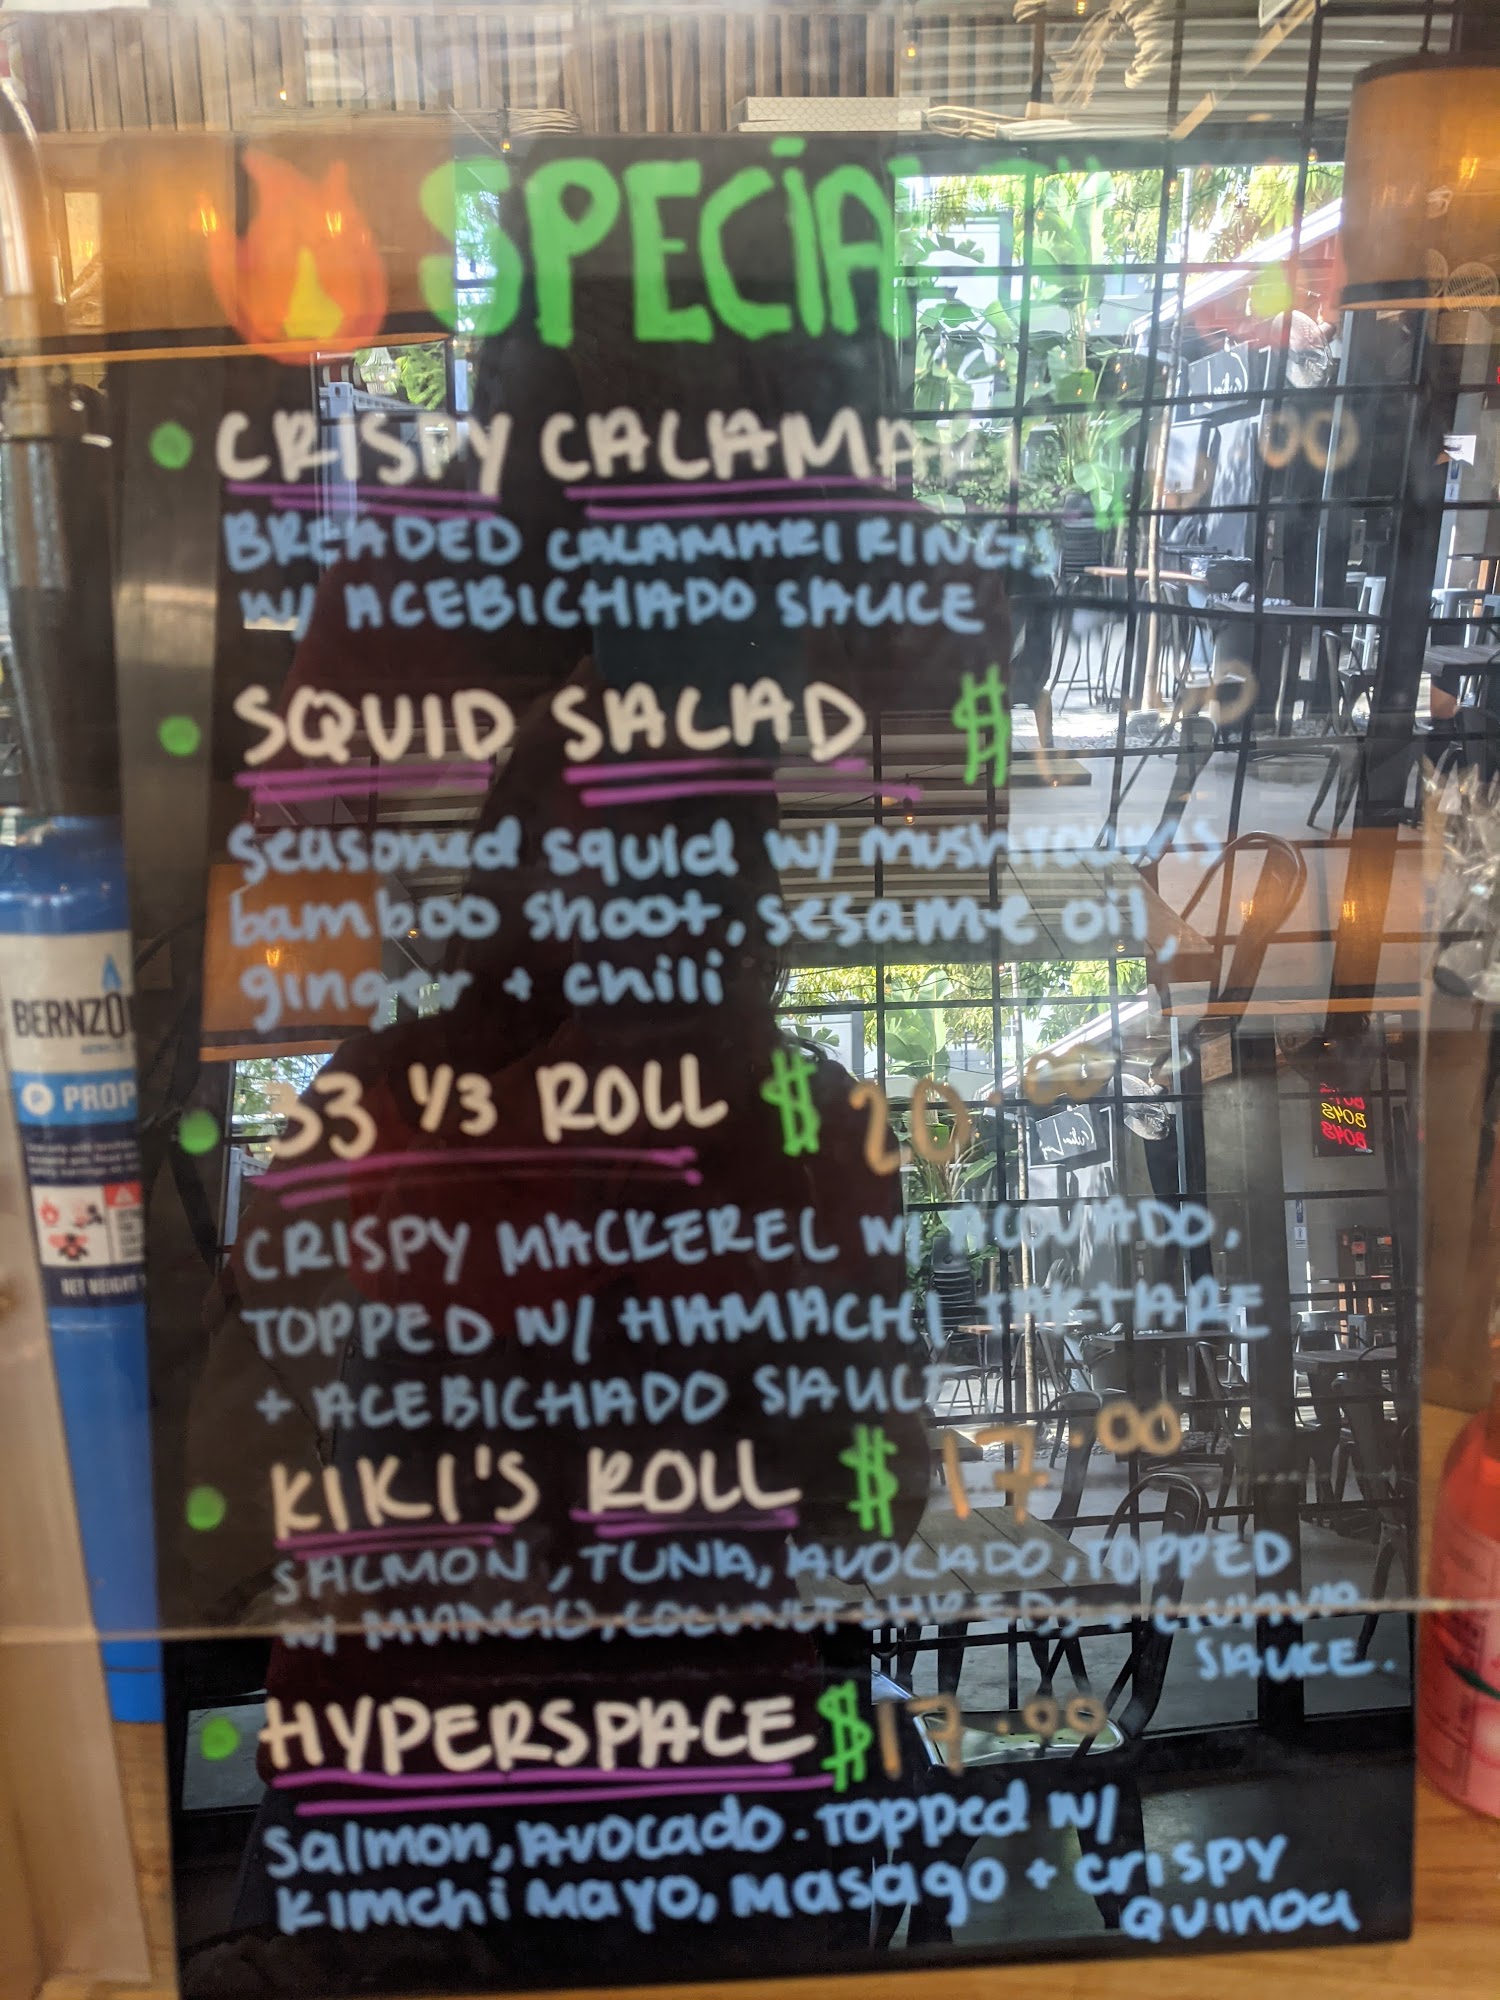 SPECIAL
CRISPY CALAMARI .00
BREADED CALAMARI RINGS
W/ ACEBICHADO SAUCE
SQUID SALAD $
seasoned squid w/ mushrooms
bamboo shoot, sesame oil,
ginger + chili
33 1/3 ROLL $20.00
CRISPY MACKEREL W/ ACOVADO,
TOPPED W/ HAMACHI TARTARE
+ ACEBICHADO SAUCE
KIKI'S ROLL $17.00
SALMON, TUNA, AVOCADO, TOPPED
W/ MANGO, COCONUT SHREDS + GUAVA
SAUCE.
HYPERSPACE $17.00
Salmon, Avocado. Topped w/
Kimchi Mayo, Masago + crispy
Quinoa
BERNZO
PROP
NET WEIGHT